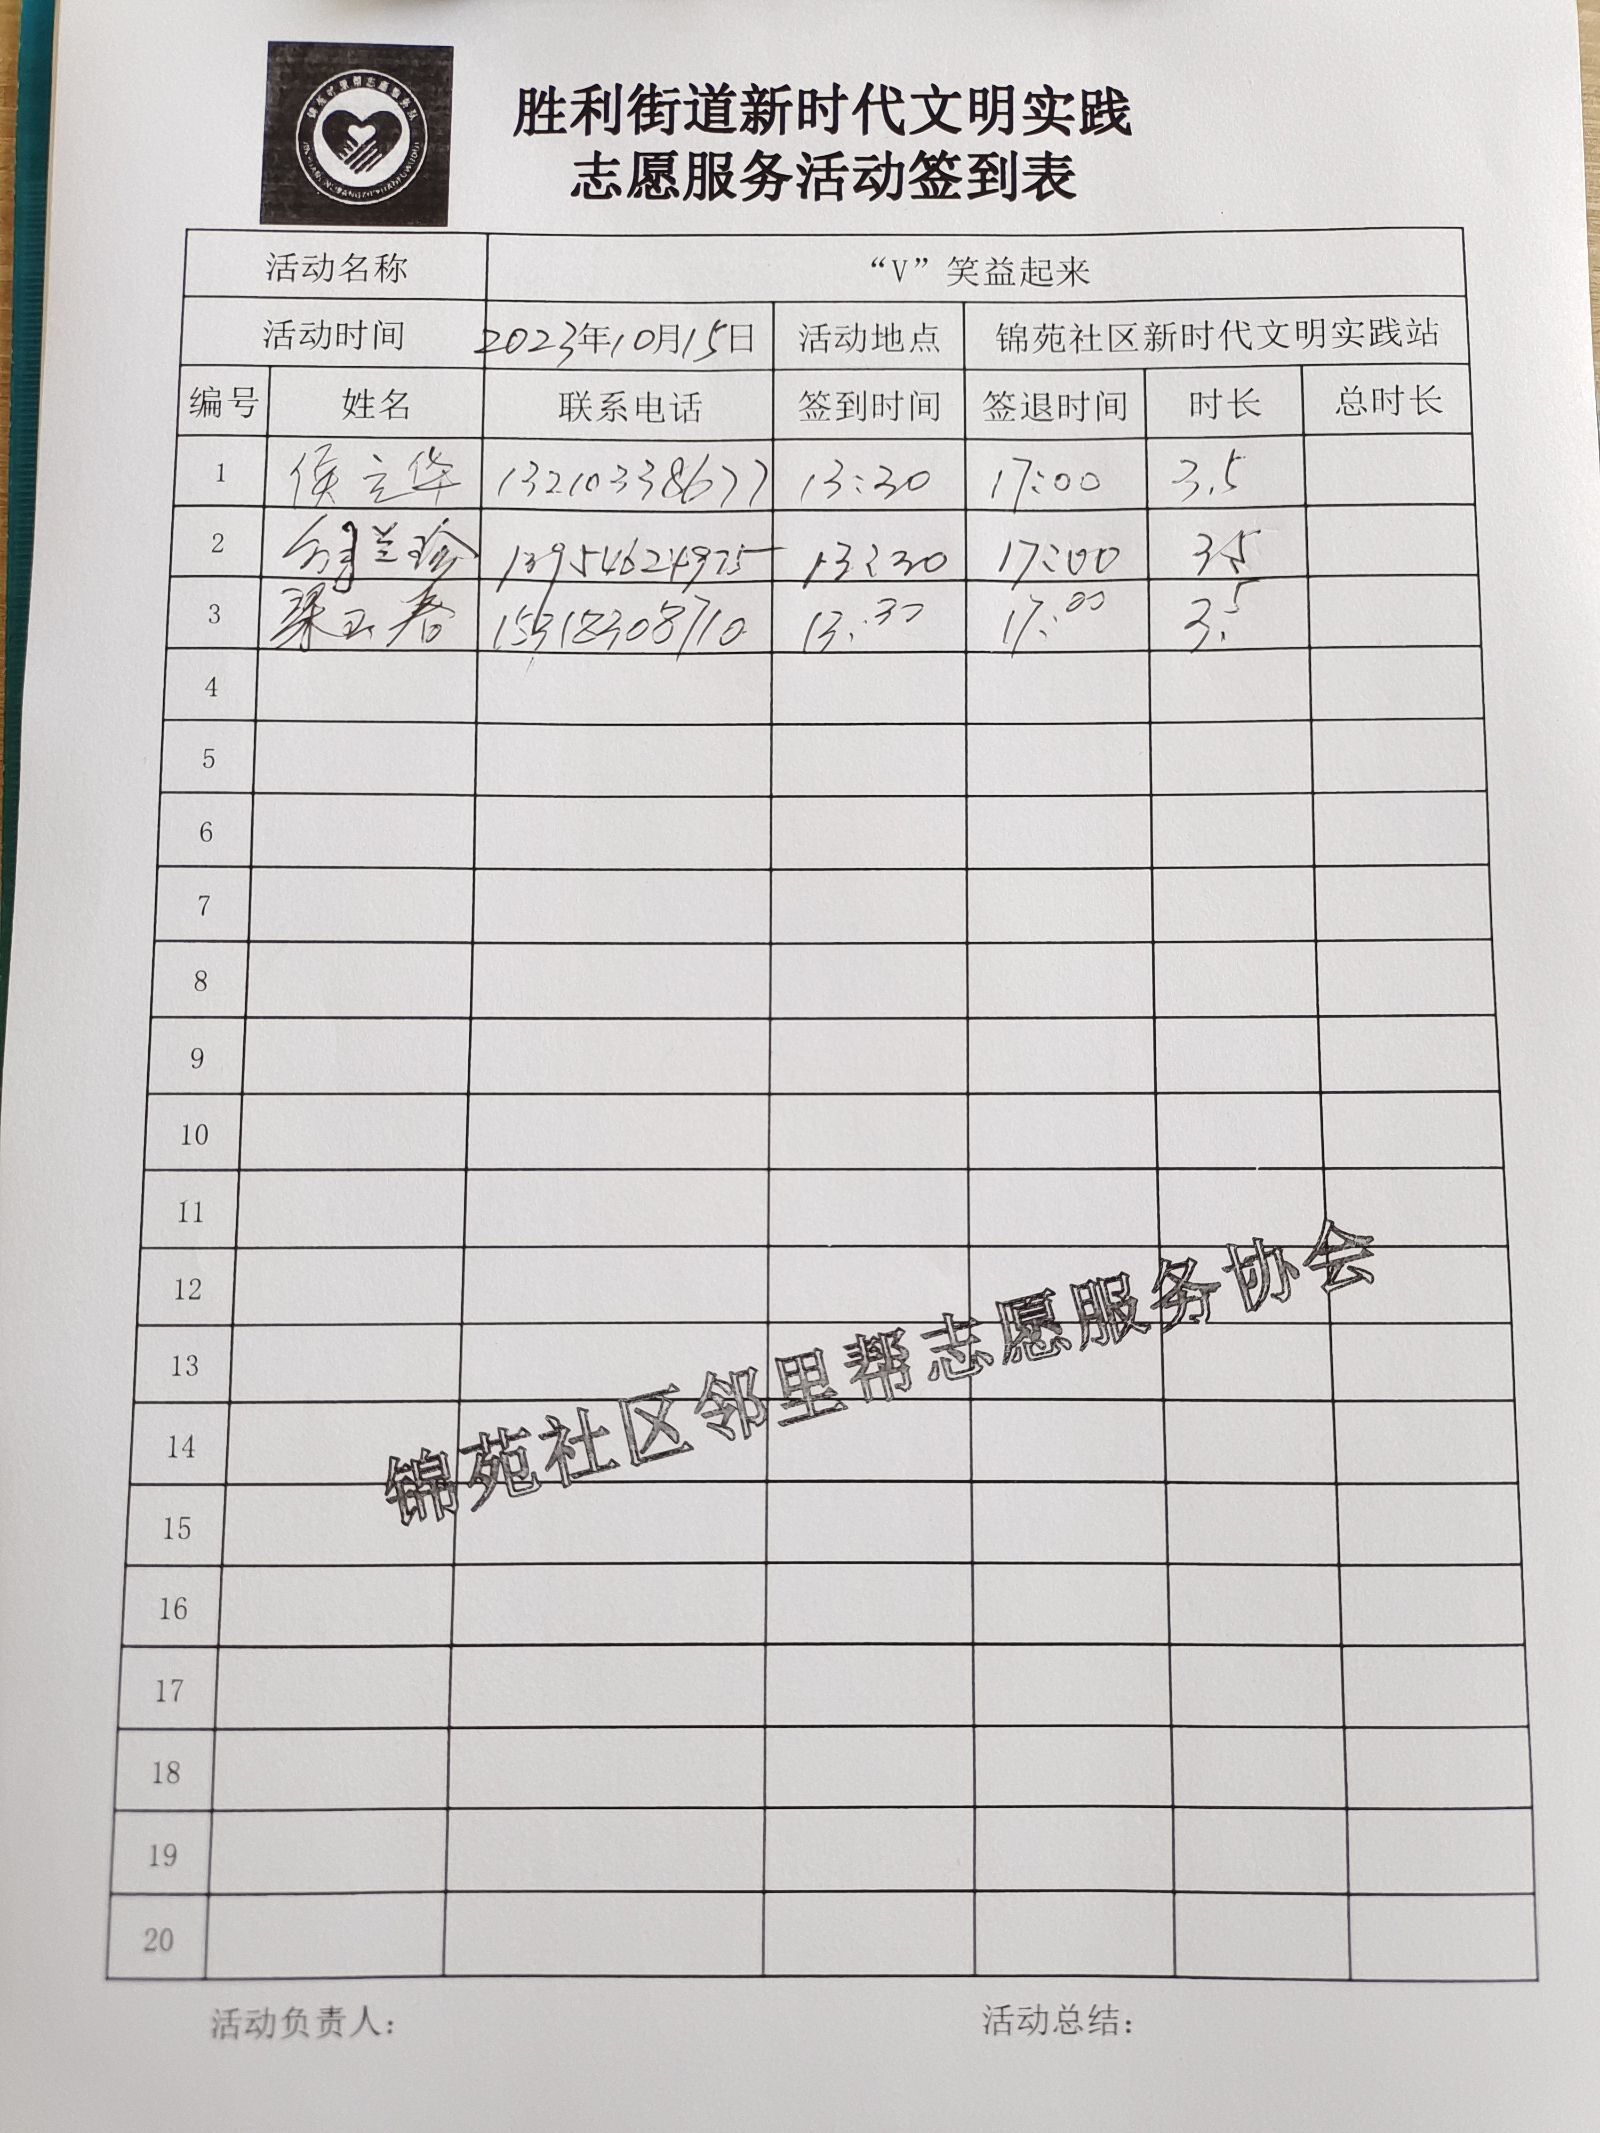 胜利街道新时代文明实践
志愿服务活动签到表
活动名称 “V”笑益起来
活动时间 2023年10月15日 活动地点 锦苑社区新时代文明实践站
编号 姓名 联系电话 签到时间 签退时间 时长 总时长
1 侯立华 13210338677 13:30 17:00 3.5
2 兰珍 13954624975 13:30 17:00 3.5
3 梁玉春 15318308710 13:30 17:00 3.5
4
5
6
7
8
9
10
11
12
13
14
15
16
17
18
19
20
锦苑社区邻里帮志愿服务协会
活动负责人： 活动总结：